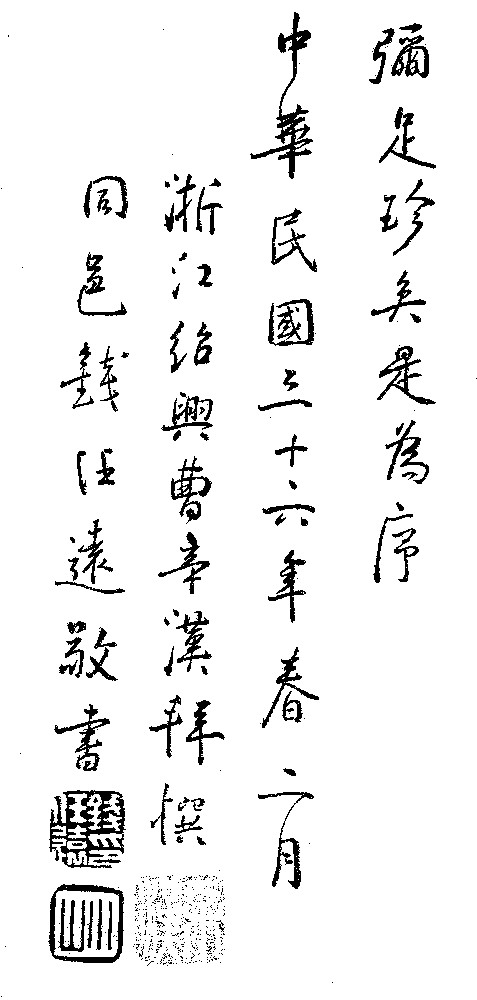 彌足珍矣是為序
中華民國三十六年春二月
浙江紹興曹辛漢拜撰
同邑錢任遠敬書